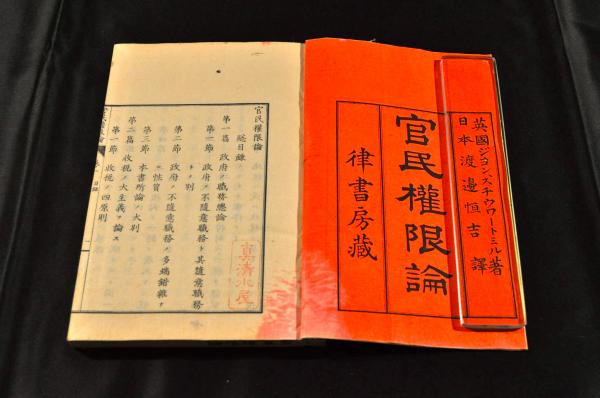 英國ジヨン、スチウワートミル著
日本渡邉恒吉譯
官民權限論
律書房藏
官民權限論
總目錄
第一篇 政府ノ職務總論
第一節 政府ノ不隨意職務ト其隨意職務
トノ別
第二節 政府ノ不隨意職務ノ多端錯雜ナ
ル性質
第三節 本書所論ノ大別
第二篇 收税ノ大主義ヲ論ス
第一節 收税ノ四原則